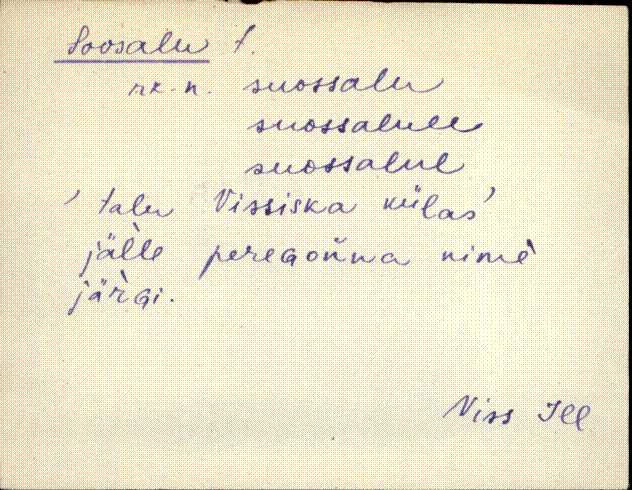 Soosalu t.
rk.-n. suossalu
suossalulle
suossalul
' talu Vissiska külas'
jäl̀le peregoǹna nimè
jär̀gi.
Viss Ill